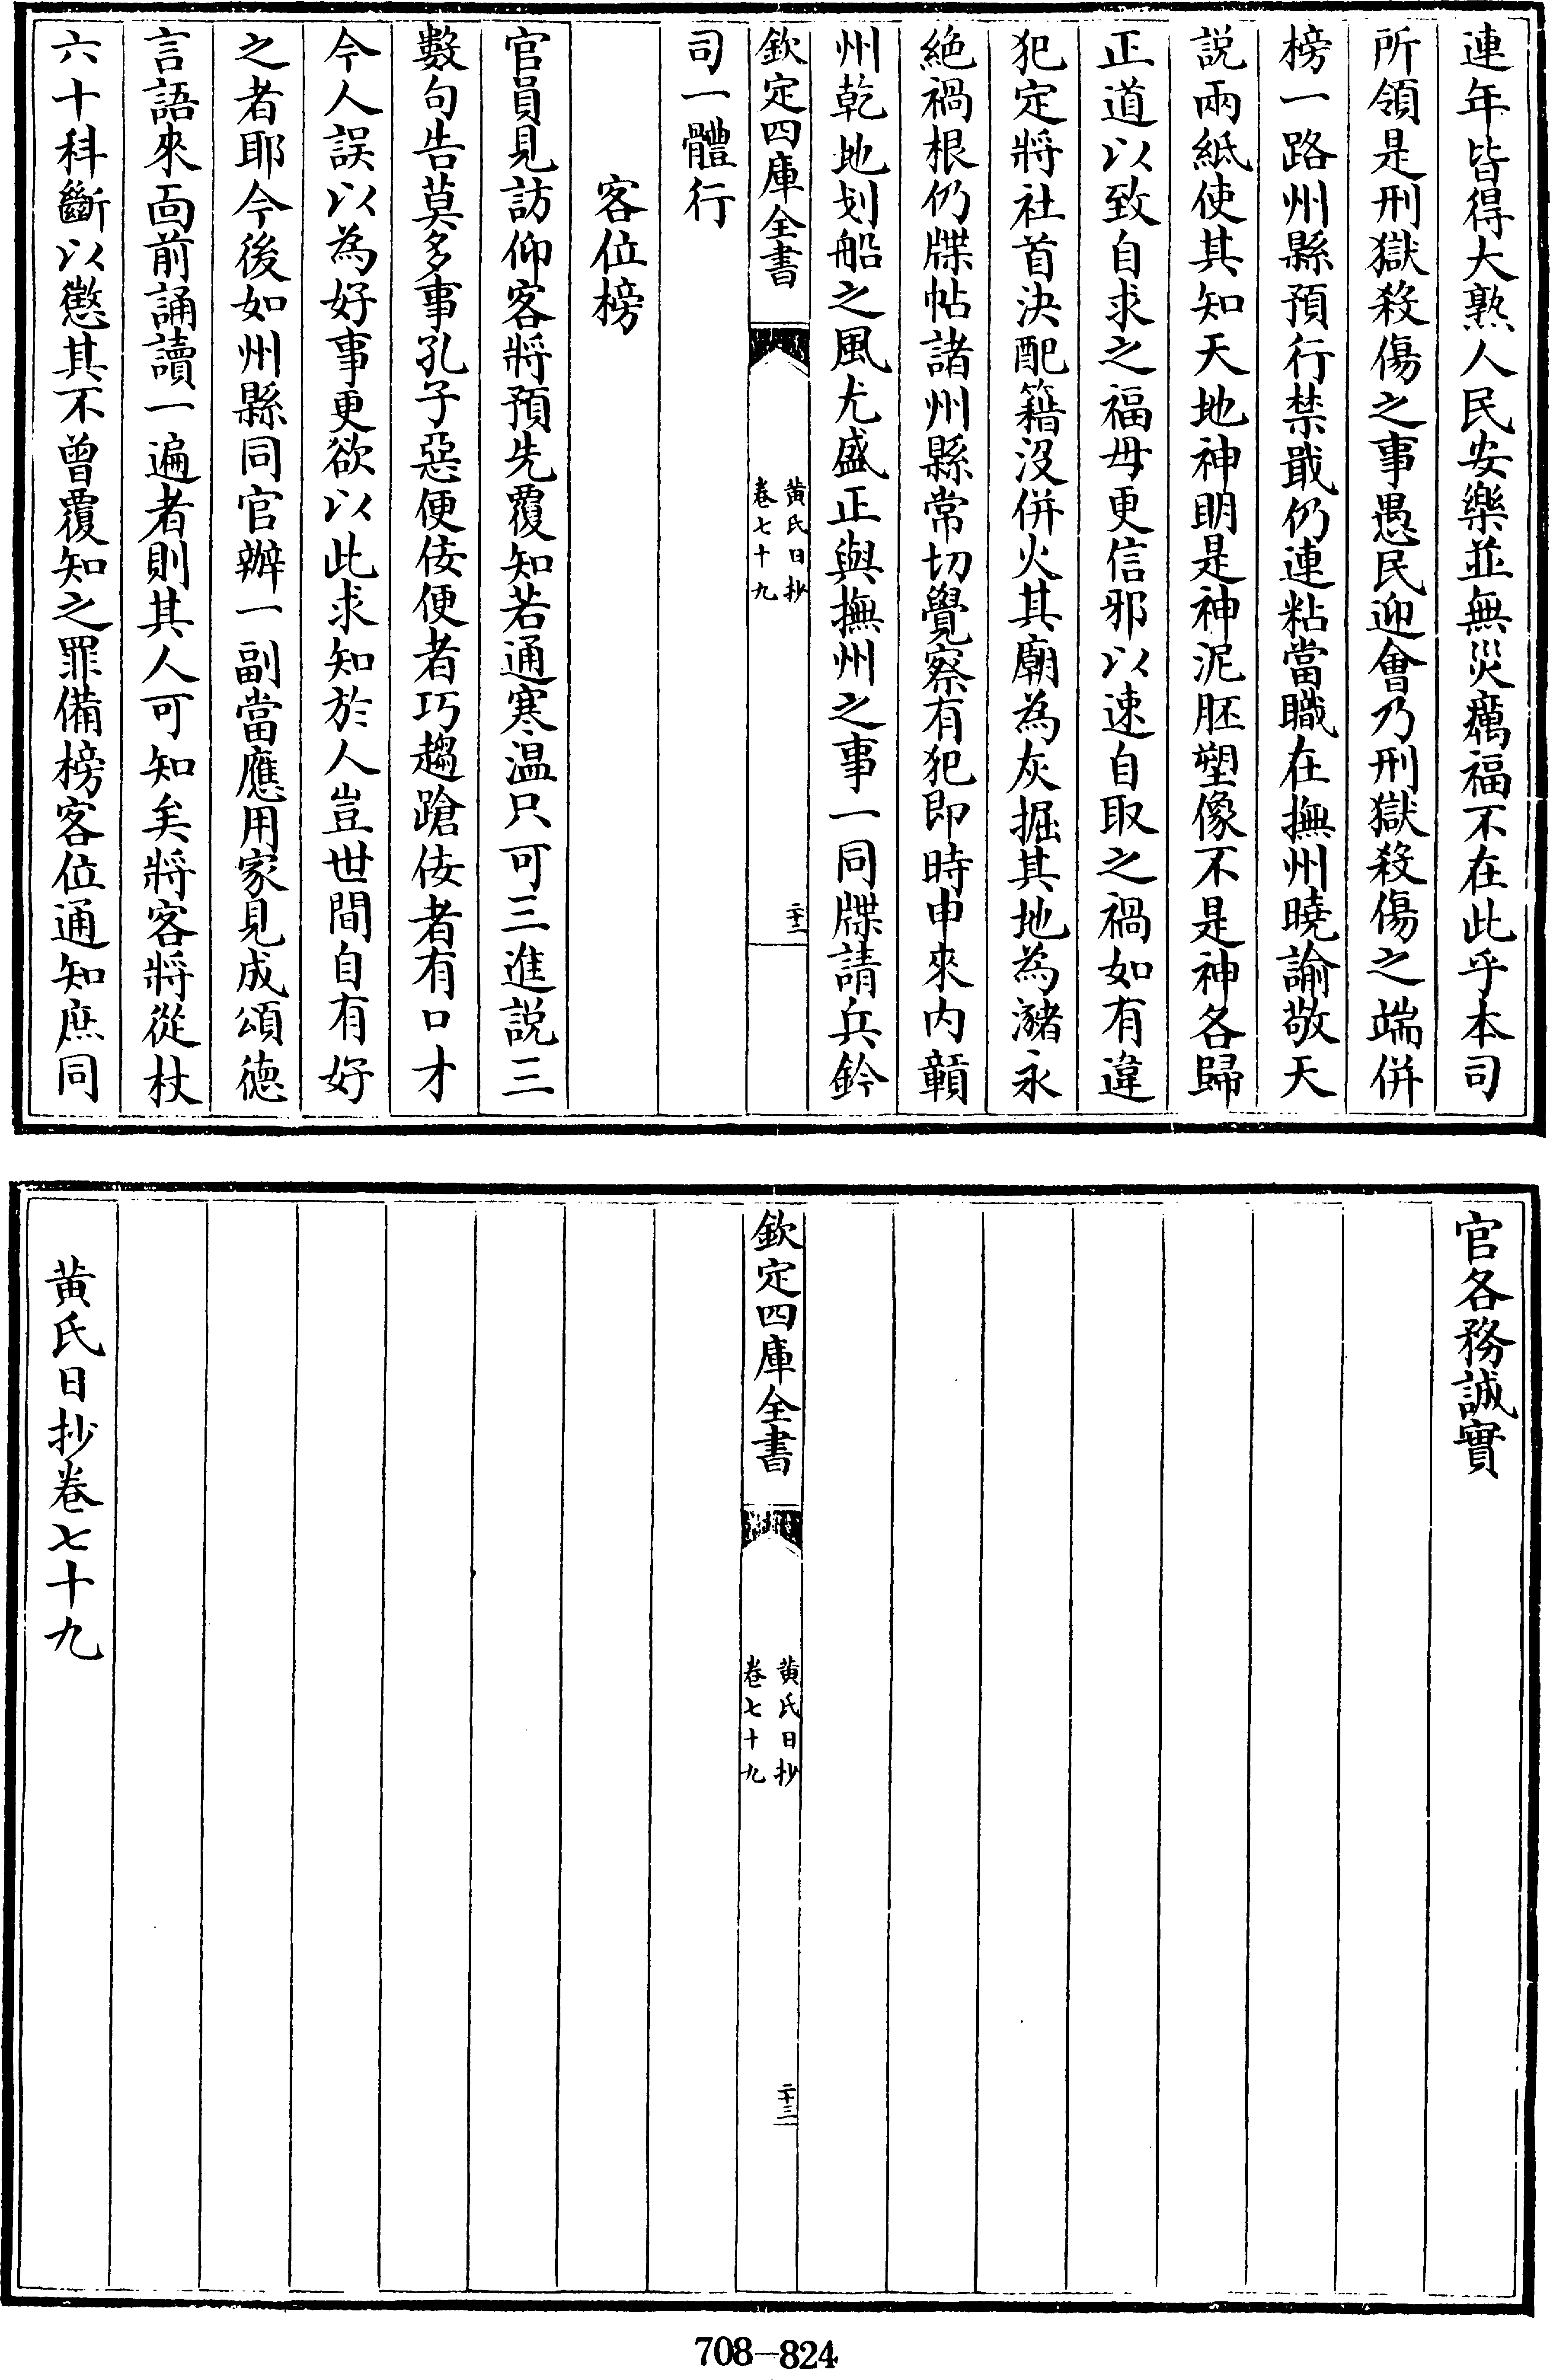 連年皆得大熟人民安樂並無災癘福不在此乎本司
所領是刑獄殺傷之事愚民迎會乃刑獄殺傷之端併
榜一路州縣預行禁戢仍連粘當職在撫州曉諭敬天
説兩紙使其知天地神明是神泥胚塑像不是神各歸
正道以致自求之福毋更信邪以速自取之禍如有違
犯定將社首決配籍沒併火其廟為灰掘其地為瀦永
絶禍根仍牒帖諸州縣常切覺察有犯即時申來内贑
州乾地划船之風尤盛正與撫州之事一同牒請兵鈐
欽定四庫全書
黄氏日抄
卷七十九
二十二
司一體行
客位榜
官員見訪仰客將預先覆知若通寒温只可三進説三
數句告莫多事孔子惡便佞便者巧趨蹌佞者有口才
今人誤以為好事更欲以此求知於人豈世間自有好
之者耶今後如州縣同官辦一副當應用家見成頌德
言語來面前誦讀一遍者則其人可知矣將客將從杖
六十科斷以懲其不曾覆知之罪備榜客位通知庶同
官各務誠實
欽定四庫全書
黄氏日抄
卷七十九
二十三
黄氏日抄卷七十九
708-824